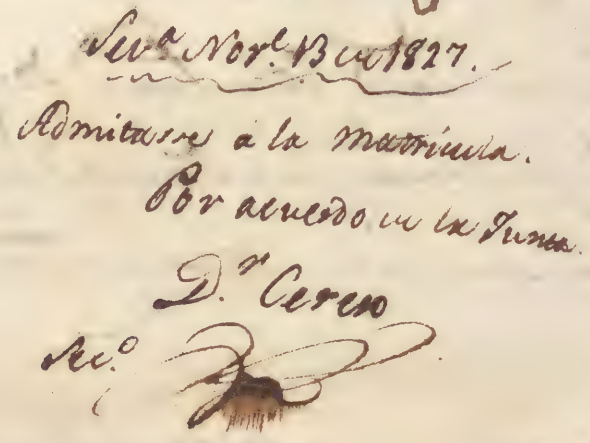 Sev.ª Nov.e 13 de 1827.
Admitasse a la matricula.
Por acuerdo de la Junta.
D.r Cerero
Sec.º